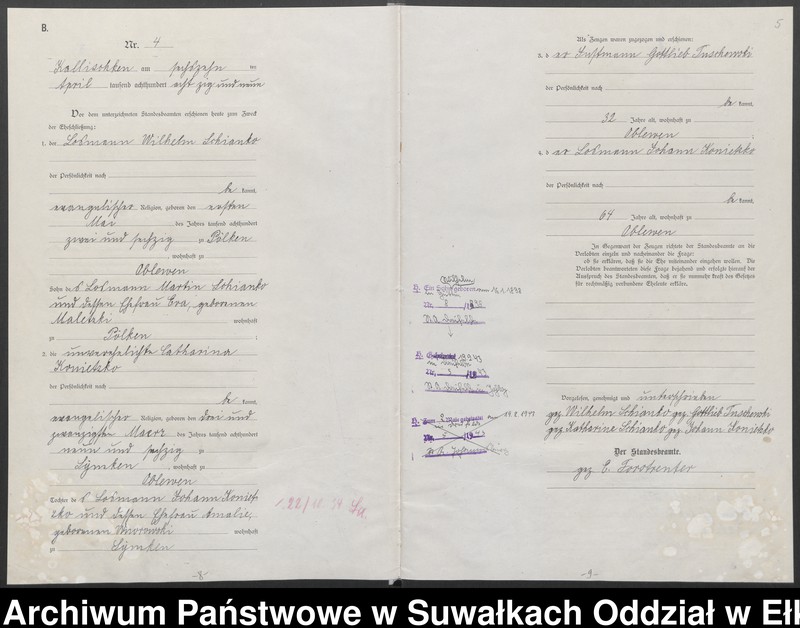 B.
Nr. 4
Kallischken am sechszehn ten
April tausend achthundert acht zig und neun
Vor dem unterzeichneten Standesbeamten erschienen heute zum Zweck
der Eheschließung:
1. der Losmann Wilhelm Schianko
der Persönlichkeit nach
be kannt,
evangelischer Religion, geboren den ersten
Mai des Jahres tausend achthundert
zwei und sechzig zu Pölken
, wohnhaft zu
Oblewen
Sohn des Losmann Martin Schianko
und dessen Ehefrau Eva, geborenen
Maletzki wohnhaft
zu Pölken ;
2. die unverehelichte Catharina
Konietzko
der Persönlichkeit nach
be kannt,
evangelischer Religion, geboren den drei und
zwanzigsten Maerz des Jahres tausend achthundert
neun und sechzig zu
Symken , wohnhaft zu
Oblewen
Tochter des Losmann Johann Koniet-
zko und dessen Ehefrau Amalie,
geborenen wohnhaft
zu Symken
-8-
5
Als Zeugen waren zugezogen und erschienen:
3. der Instmann Gottlieb Tuschowski
der Persönlichkeit nach
be kannt,
32 Jahre alt, wohnhaft zu
Oblewen ;
4. der Losmann Johann Konietzko
der Persönlichkeit nach
be kannt,
64 Jahre alt, wohnhaft zu
Oblewen
In Gegenwart der Zeugen richtete der Standesbeamte an die
Verlobten einzeln und nacheinander die Frage:
ob sie erklären, daß sie die Ehe miteinander eingehen wollen. Die
Verlobten beantworteten diese Frage bejahend und erfolgte hierauf der
Ausspruch des Standesbeamten, daß er sie nunmehr kraft des Gesetzes
für rechtmäßig verbundene Eheleute erkläre.
Vorgelesen, genehmigt und unterschrieben
gez Wilhelm Schianko gez Gottlieb Tuschowski
gez Katharine Schianko gez Johann Konietzko
Der Standesbeamte.
gez E. Forstreuter
-9-
Archiwum Państwowe w Suwałkach Oddział w Ełk